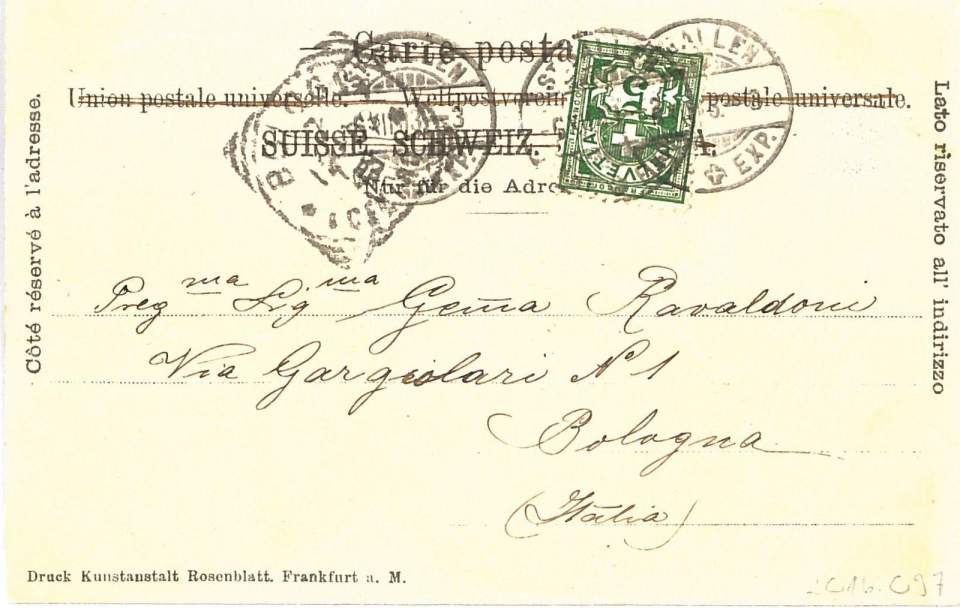 Carte postale.
Union postale universelle. Weltpostverein postale universale.
SUISSE. SCHWEIZ.
Nur für die Adresse
Côté réservé à l'adresse.
Lato riservato all' indirizzo
5
EXP.
Preg ma Sig ma Gem̃a Ravaldoni
Via Gargiolari N 1
Bologna
(Itália)
Druck Kunstanstalt Rosenblatt. Frankfurt a. M.